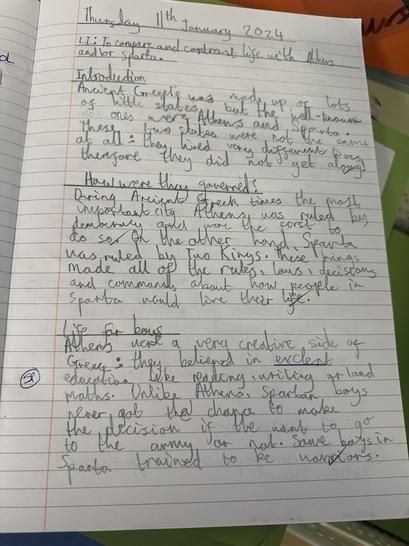 Thursday 11th January 2024
LI: To compare and contrast life with Athens
and/or Sparta.
Introduction
Ancient Greece was made up of lots
of little states, but the well-known
ones were Athens and Sparta.
These two states were not the same
at all: they lived very different lives
therefore they did not get along
How were they governed?
During Ancient Greek times the most
important city Athens was ruled by
democracy and were the first to
do so. On the other hand, Sparta
was ruled by Two Kings. These kings
made all of the rules, laws, decisions
and commands about how people in
Sparta would live their life.
Life for boys
Athens were a very creative side of
Greece: they believed in
education like reading, writing and
maths. Unlike Athens, Spartan boys
never got the chance to make
the decision if the want to go
to the army or not. Some boys in
Sparta trained to be warriors.
Sp